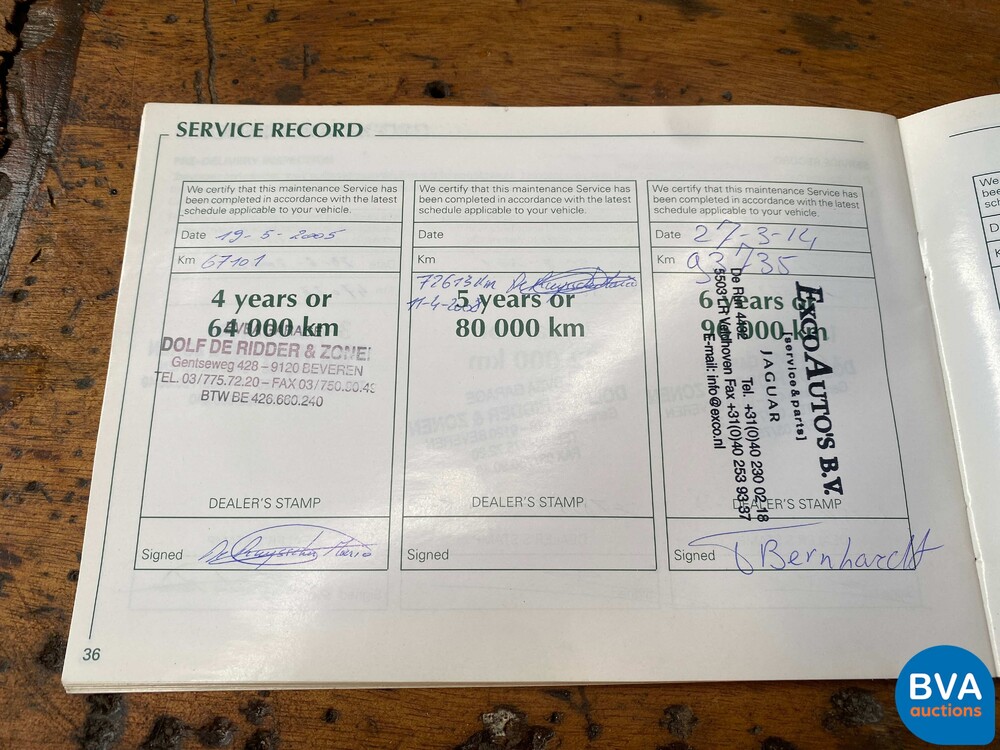 SERVICE RECORD
We certify that this maintenance Service has
been completed in accordance with the latest
schedule applicable to your vehicle.
Date 19-5-2005
Km 67101
4 years or
64 000 km
DOLF DE RIDDER & ZONEN
Gentseweg 428 – 9120 BEVEREN
TEL. 03/775.72.20 – FAX 03/750.80.4
BTW BE 426.660.240
DEALER'S STAMP
Signed
We certify that this maintenance Service has
been completed in accordance with the latest
schedule applicable to your vehicle.
Date
Km
72613 km
11-4-2008
5 years or
80 000 km
DEALER'S STAMP
Signed
We certify that this maintenance Service has
been completed in accordance with the latest
schedule applicable to your vehicle.
Date 27-3-14
Km 93735
6 years or
96 000 km
EXCO AUTO'S B.V.
[service & parts]
JAGUAR
De Run 4432 Tel. +31(0)40 230 02 18
5503 LR Veldhoven Fax +31(0)40 253 93 37
E-mail: info@exco.nl
DEALER'S STAMP
Signed Bernhardt
36
BVA
auctions